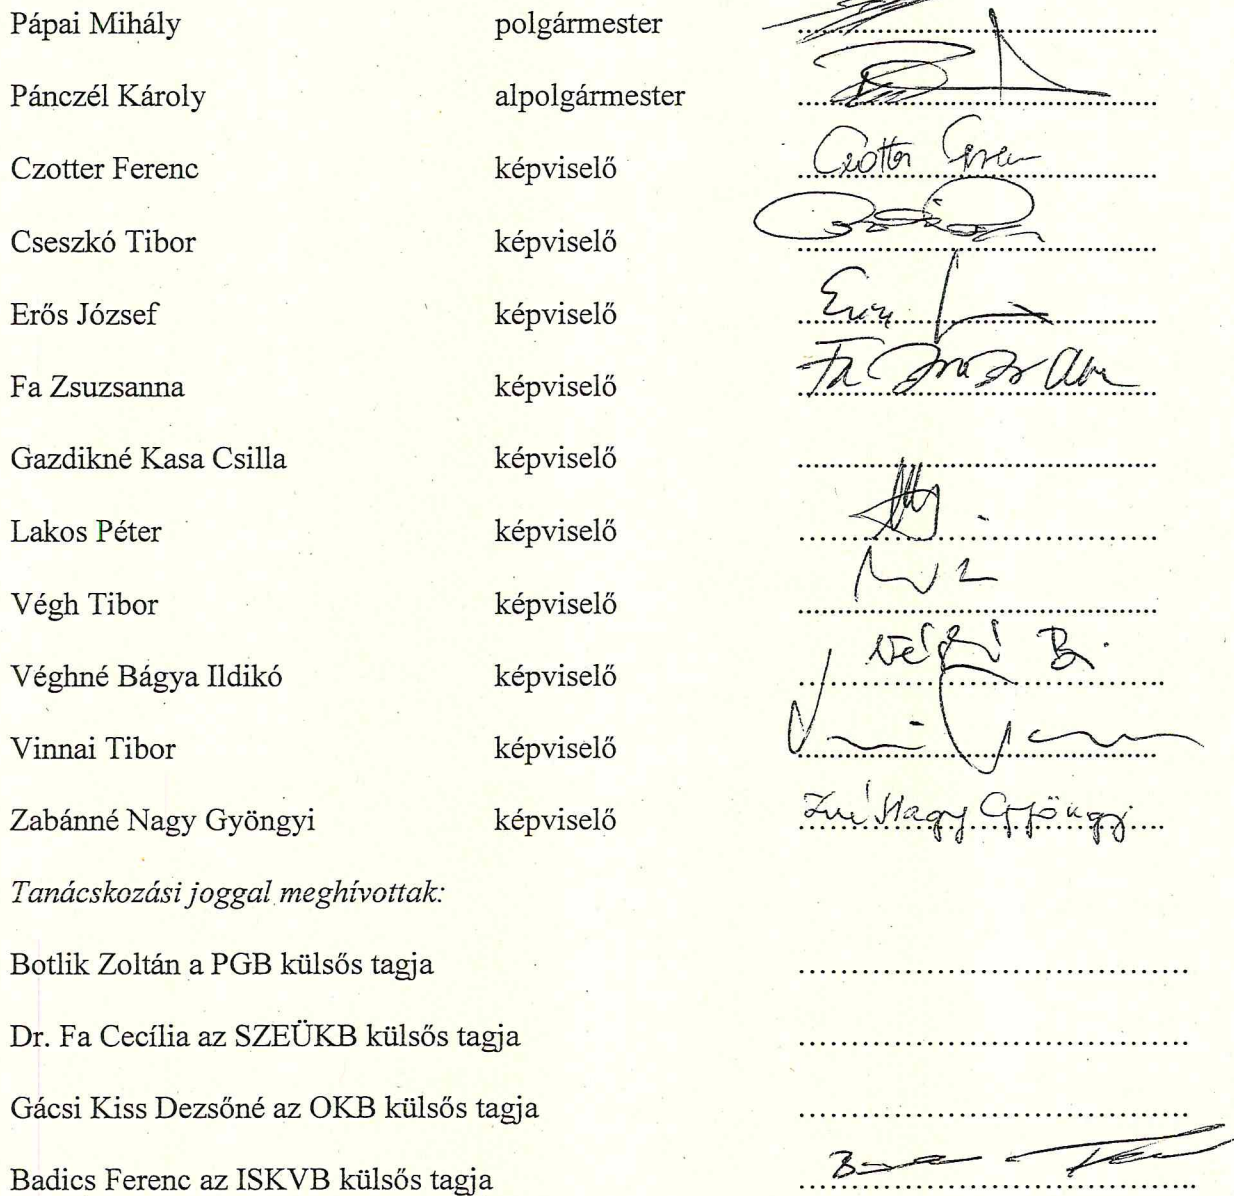 Pápai Mihály polgármester
Pánczél Károly alpolgármester
Czotter Ferenc képviselő Czotter Ferenc
Cseszkó Tibor képviselő
Erős József képviselő
Fa Zsuzsanna képviselő Fa Zsuzsanna
Gazdikné Kasa Csilla képviselő
Lakos Péter képviselő
Végh Tibor képviselő
Véghné Bágya Ildikó képviselő Véghné B.
Vinnai Tibor képviselő
Zabánné Nagy Gyöngyi képviselő Zné Nagy Gyöngyi
Tanácskozási joggal meghívottak:
Botlik Zoltán a PGB külsős tagja
Dr. Fa Cecília az SZEÜKB külsős tagja
Gácsi Kiss Dezsőné az OKB külsős tagja
Badics Ferenc az ISKVB külsős tagja